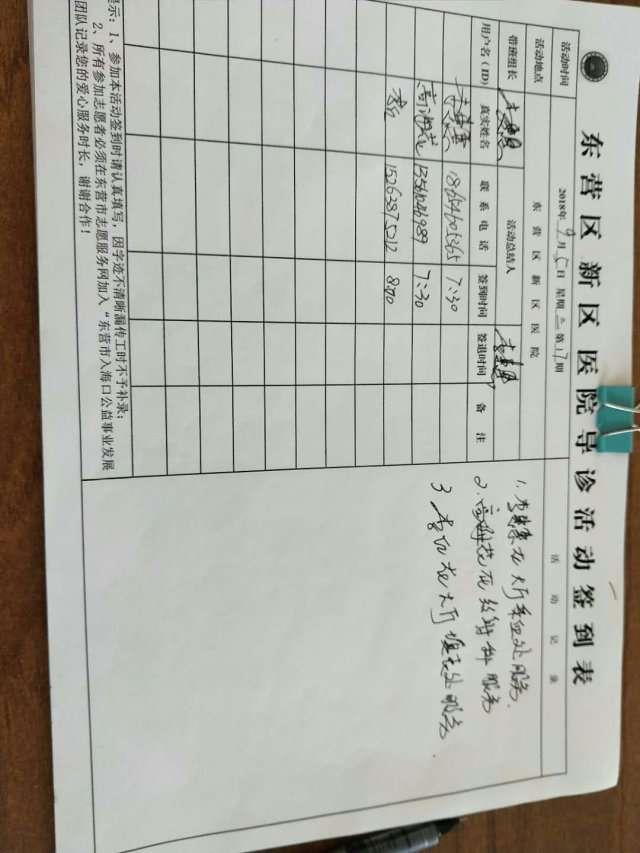 东营区新区医院导诊活动签到表
活动时间 2018年9月5日 星期三 第17期
活动记录
活动地点 东营区新区医院
带班组长 活动总结人
用户名(ID) 真实姓名 联系电话 签到时间 签退时间 备注
18654605365 7:30
高海花 13561046989 7:30
李红 15263875212 8:00
1. 在大厅 处服务.
2. 高海花在放射科服务
3 李红在大厅 处服务.
示:1、参加本活动签到时请认真填写,因字迹不清晰漏传工时不予补录;
2、所有参加志愿者必须在东营市志愿服务网加入“东营市入海口公益事业发展
团队记录您的爱心服务时长,谢谢合作!